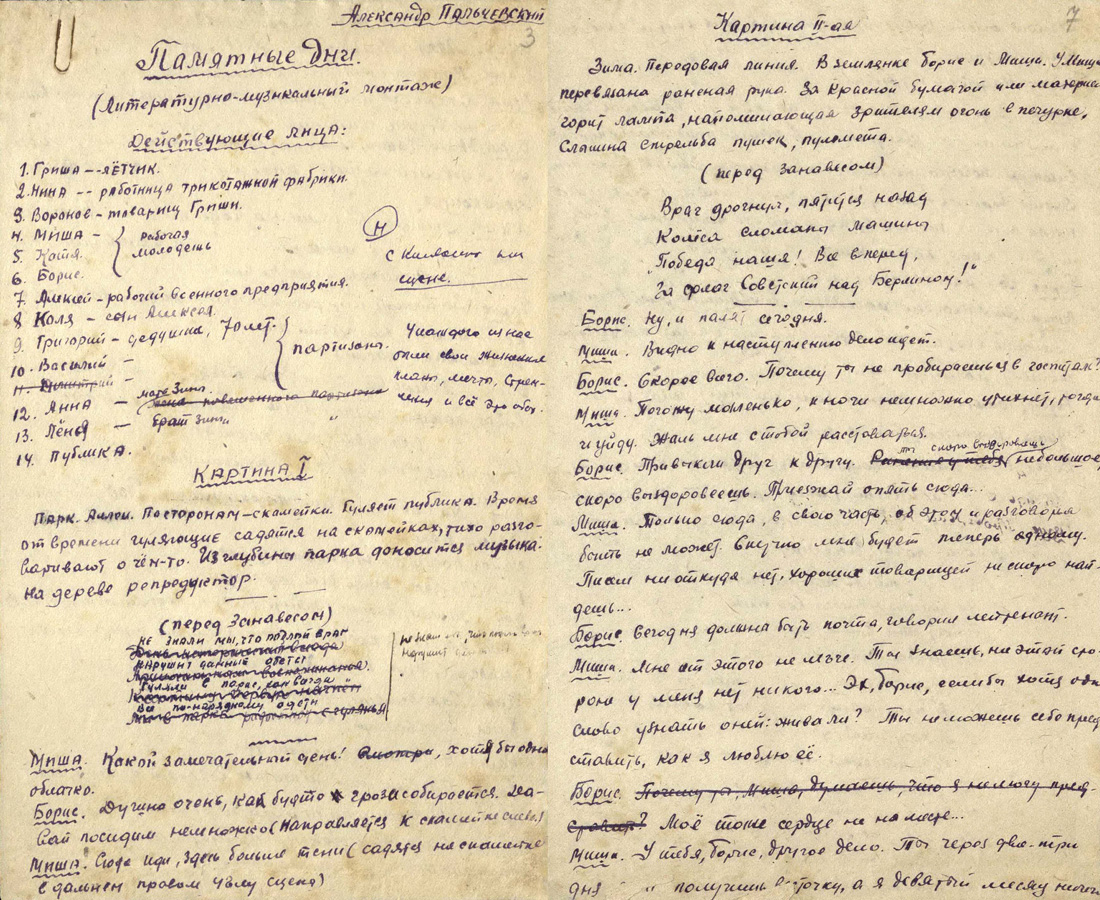 Александр Пальчевский
3
Памятные дни.
(Литературно-музыкальный монтаж)
Действующие лица:
1. Гриша -- лётчик.
2. Нина -- работница трикотажной фабрики.
3. Воронов – товарищ Гриши.
4. Миша –
5. Катя.
6. Борис.
рабочая
молодежь
7. Алексей – рабочий военного предприятия.
8 Коля – сын Алексея.
9. Григорий – дедушка, 70 лет.
10. Василий –
11. Димитрий –
12. Анна – мать Зины.
13. Лёня – брат Зины
14. Публика.
партизаны.
Н
сцене.
У каждого из нас
были свои жизненные
планы, мечты, стрем-
ления и всё это
Картина I
Парк. Аллеи. По сторонам – скамейки. Гуляет публика. Время
от времени гуляющие садятся на скамейках, тихо разго-
варивают о чём-то. Из глубины парка доносится музыка.
на дереве репродуктор.
(перед занавесом)
Не знали мы, что подлый враг
Нарушит данные обеты
Гуляли в парке, как всегда
Все по-нарядному одеты
Миша. Какой замечательный день! Смотри, хотя бы одно
облачко.
Борис. Душно очень, как будто гроза собирается. Да-
вай посидим немножко (направляется к скамейке слева)
Миша. Сюда иди, здесь больше тени (садятся на скамейке
в дальнем правом углу сцены)
7
Картина II-ая
Зима. Передовая линия. В землянке Борис и Миша. У Миши
перевязана раненая рука. За красной бумагой или материей
горит лампа, напоминающая зрителям огонь в печурке.
Слышна стрельба пушек, пулемета.
(перед занавесом)
Враг дрогнул, пятится назад
Колёса сломаны машины
"Победа наша! Все вперед,
За флаг Советский над Берлином!"
Борис. Ну, и палят сегодня.
Миша. Видно к наступлению дело идет.
Борис. Скорее всего. Почему ты не пробираешься в госпиталь?
Миша. Погожу маленько, к ночи немножко утихнет, тогда
и уйду. Жаль мне с тобой расставаться.
Борис. Привыкли друг к другу. Ранение у тебя небольшое,
ты скоро выздоровеешь
скоро выздоровеешь. Приезжай опять сюда...
Миша. Только сюда, в свою часть, об этом и разговора
быть не может. Скучно мне будет теперь одному.
Писем ни откуда нет, хороших товарищей не скоро най-
дешь...
Борис. Сегодня должна быть почта, говорил лейтенант.
Миша. Мне от этого не легче. Ты знаешь, на этой сто-
роне у меня нет никого... Эх, Борис, если бы хотя одно
слово узнать о ней: жива ли? Ты не можешь себе пред-
ставить, как я люблю её.
Борис. Почему ты, Миша, думаешь, что я не могу пред-
ставить? Моё тоже сердце не на месте...
Миша. У тебя, Борис, другое дело. Ты через два-три
дня получишь весточку, а я девятый месяц ничего